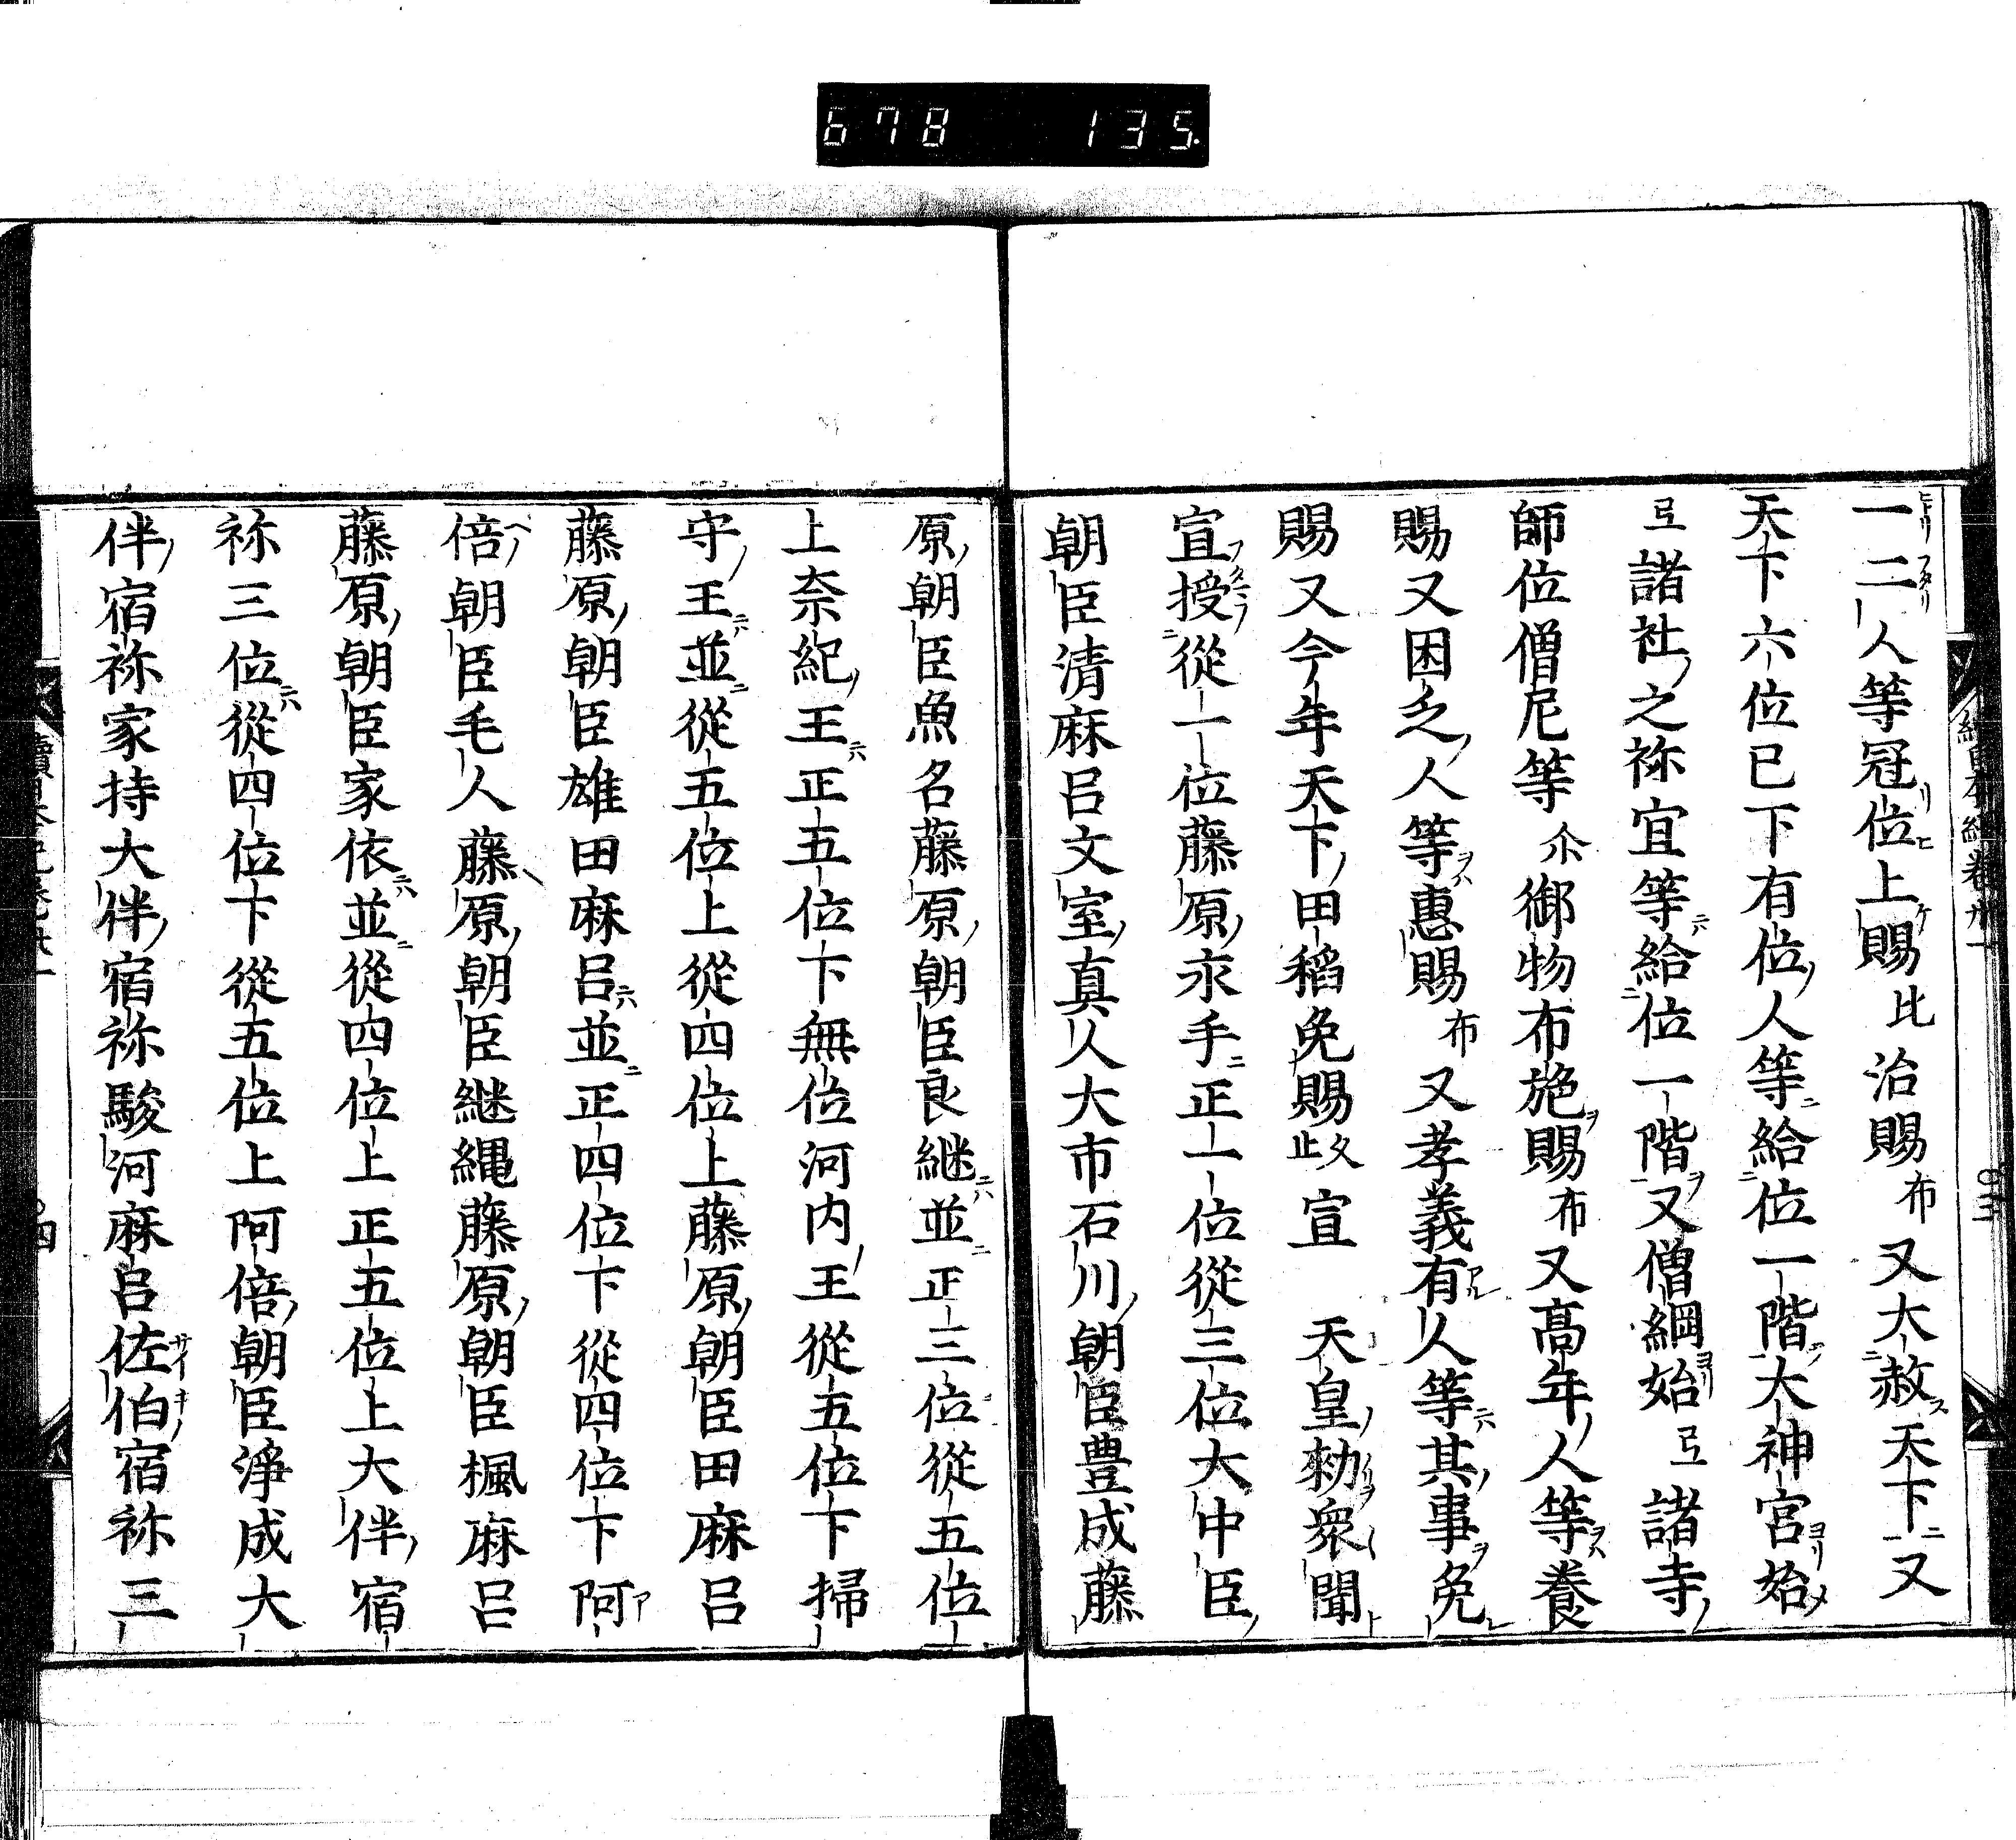 678 135
一二人等冠位上賜比治賜布又大赦天下又
天下六位已下有位人等給位一階大神宮始
弖諸社之祢宜等給位一階又僧綱始弖諸寺
師位僧尼等尓御物布施賜布又高年人等養
賜又困乏人等惠賜布又孝義有人等其事免
賜又今年天下田稻免賜久止宣　天皇勅衆聞
宣授從一位藤原永手正一位從三位大中臣
朝臣清麻呂文室真人大市石川朝臣豊成藤
原朝臣魚名藤原朝臣良継並正三位從五位
上奈紀王正五位下無位河内王從五位下掃
守王並從五位上從四位上藤原朝臣田麻呂
藤原朝臣雄田麻呂並正四位下從四位下阿
倍朝臣毛人藤原朝臣継縄藤原朝臣楓麻呂
藤原朝臣家依並從四位上正五位上大伴宿
祢三位從四位下從五位上阿倍朝臣淨成大
伴宿祢家持大伴宿祢駿河麻呂佐伯宿祢三